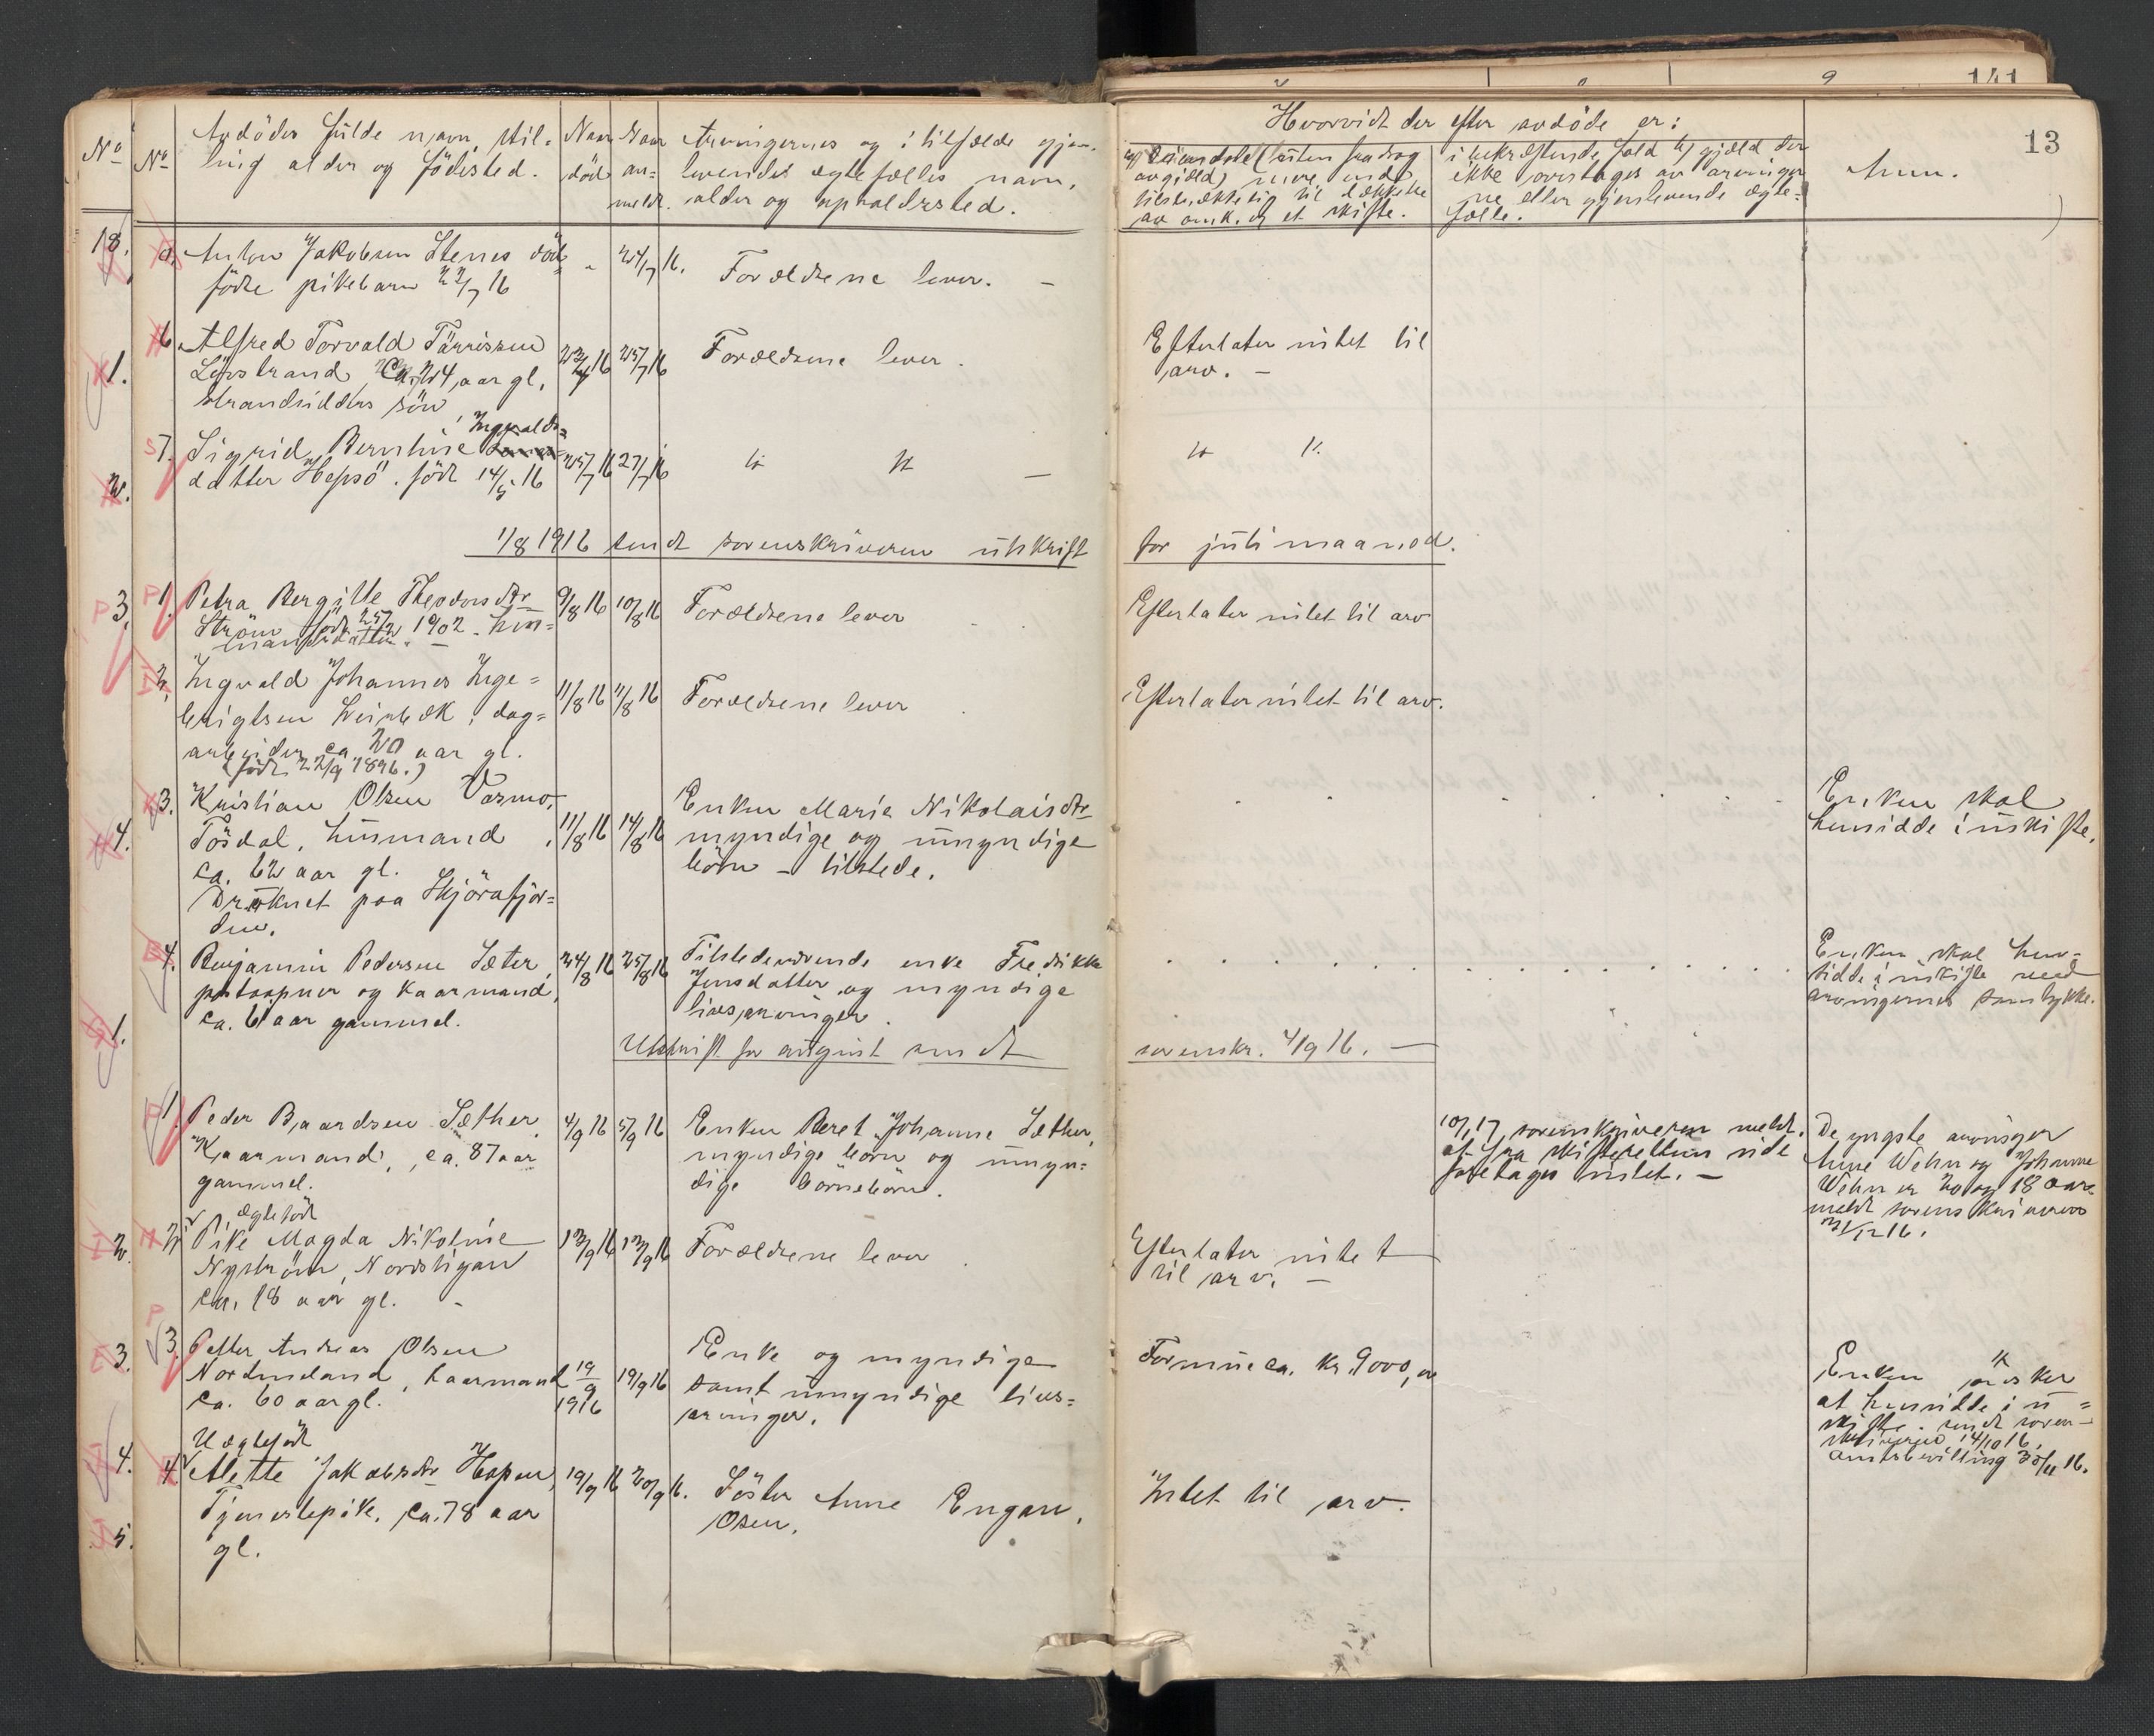 13
No
No
Avdödes fulde navn, stil-
ling alder og födested.
Naar
död
Naar
an-
meldt.
Arvingernes og i tilfælde gjen-
levendes egtefælles navn,
alder og opholdssted.
Hvorvidt der efter avdöde er:
eiendele (uten fradrag
av gjæld) mere end
tilstrækkelig til dækkelse
av omk. ved et skifte.
i bekræftende fald gjæld der
ikke overtages av arvinger
ne eller gjenlevende egte-
fælle.
Anm.
18.
Anton Jakobsen Stenes död
födte pikebarn 22/7 16
" 24/7 16.
Forældrene lever. -
1.
6.
Alfred Torvald Törrissen
Lövstrand Ca. 24 aar gl.
strandsidders sön
23/7 16
25/7 16
Forældrene lever.
Efterlater intet til
arv. -
2.
7.
Sigrid Berntine Ingvalds-
datter Hepsö. född 14/5 16
25/7 16
27/7 16
" " -
" "
1/8 1916 sendt sorenskriveren utskrift for juli maaned.
P 3.
P 1.
Petra Bergitte Theodorsdtr
Ström född 25/2 1902.
9/8 16
10/8 16
Forældrene lever
Efterlater intet til arv
2.
Ingvald Johannes Inge-
brigtsen Leinbæk, dag-
arbeider ca 20 aar gl.
(född 22/9 1896.)
11/8 16
11/8 16
Forældrene lever
Efterlater intet til arv.
4.
3.
Kristian Olsen Varmo,
Tösdal, husmand
ca. 62 aar gl.
Druknet paa Skjörafjor-
den.
11/8 16
14/8 16
Enken Marie Nikolaisdtr
myndige og umyndige
börn - tilstede.
Enken skal
hensidde i uskifte.
1.
4.
Benjamin Pedersen Sæter,
postaapner og kaarmand,
ca. 61 aar gammel.
24/8 16
25/8 16
Tilstedeværende enke Fredrikke
Jensdatter og myndige
livsarvinger.
Enken skal hen-
sidde i uskifte med
arvingernes samtykke.
Utskrift for august sendt sorenskr. 4/9 16. -
1.
Peder Baardsen Sæther
Kaarmand, ca. 87 aar
gammel.
4/9 16
5/9 16
Enken Beret Johanne Sæther,
myndige börn og umyn-
dige börnebörn.
10/1 17, sorenskriveren meldt.
at fra skifterettens side
foretages intet. -
De yngste arvinger
Anne Wehn og Johanne
Wehn er 20 og 18 aar.
meldt sorenskriveren
31/12 16.
2.
2.
ægtefödt
Pike Magda Nikoline
Nyström, Nordstigan
ca. 18 aar gl. -
13/9 16
13/9 16
Forældrene lever
Efterlater intet
til arv. -
3.
P
3.
Petter Andreas Olsen
Nordmeland, kaarmand
ca. 60 aar gl.
19/9
1916
19/9 16
Enke og myndige
samt umyndige livs-
arvinger.
Formue ca. kr. 9000,00
Enken önsker
at hensidde i u-
skifte. sendt soren-
skriveren 14/10 16.
amtsbevilling 30/11 16.
4.
4.
Uægtefödt
Alette Jakobsdtr Hopen,
Tjenestepike. ca. 78 aar
gl.
19/9 16
20/9 16.
Söster Anne Engan,
Osen.
Intet til arv.
5.